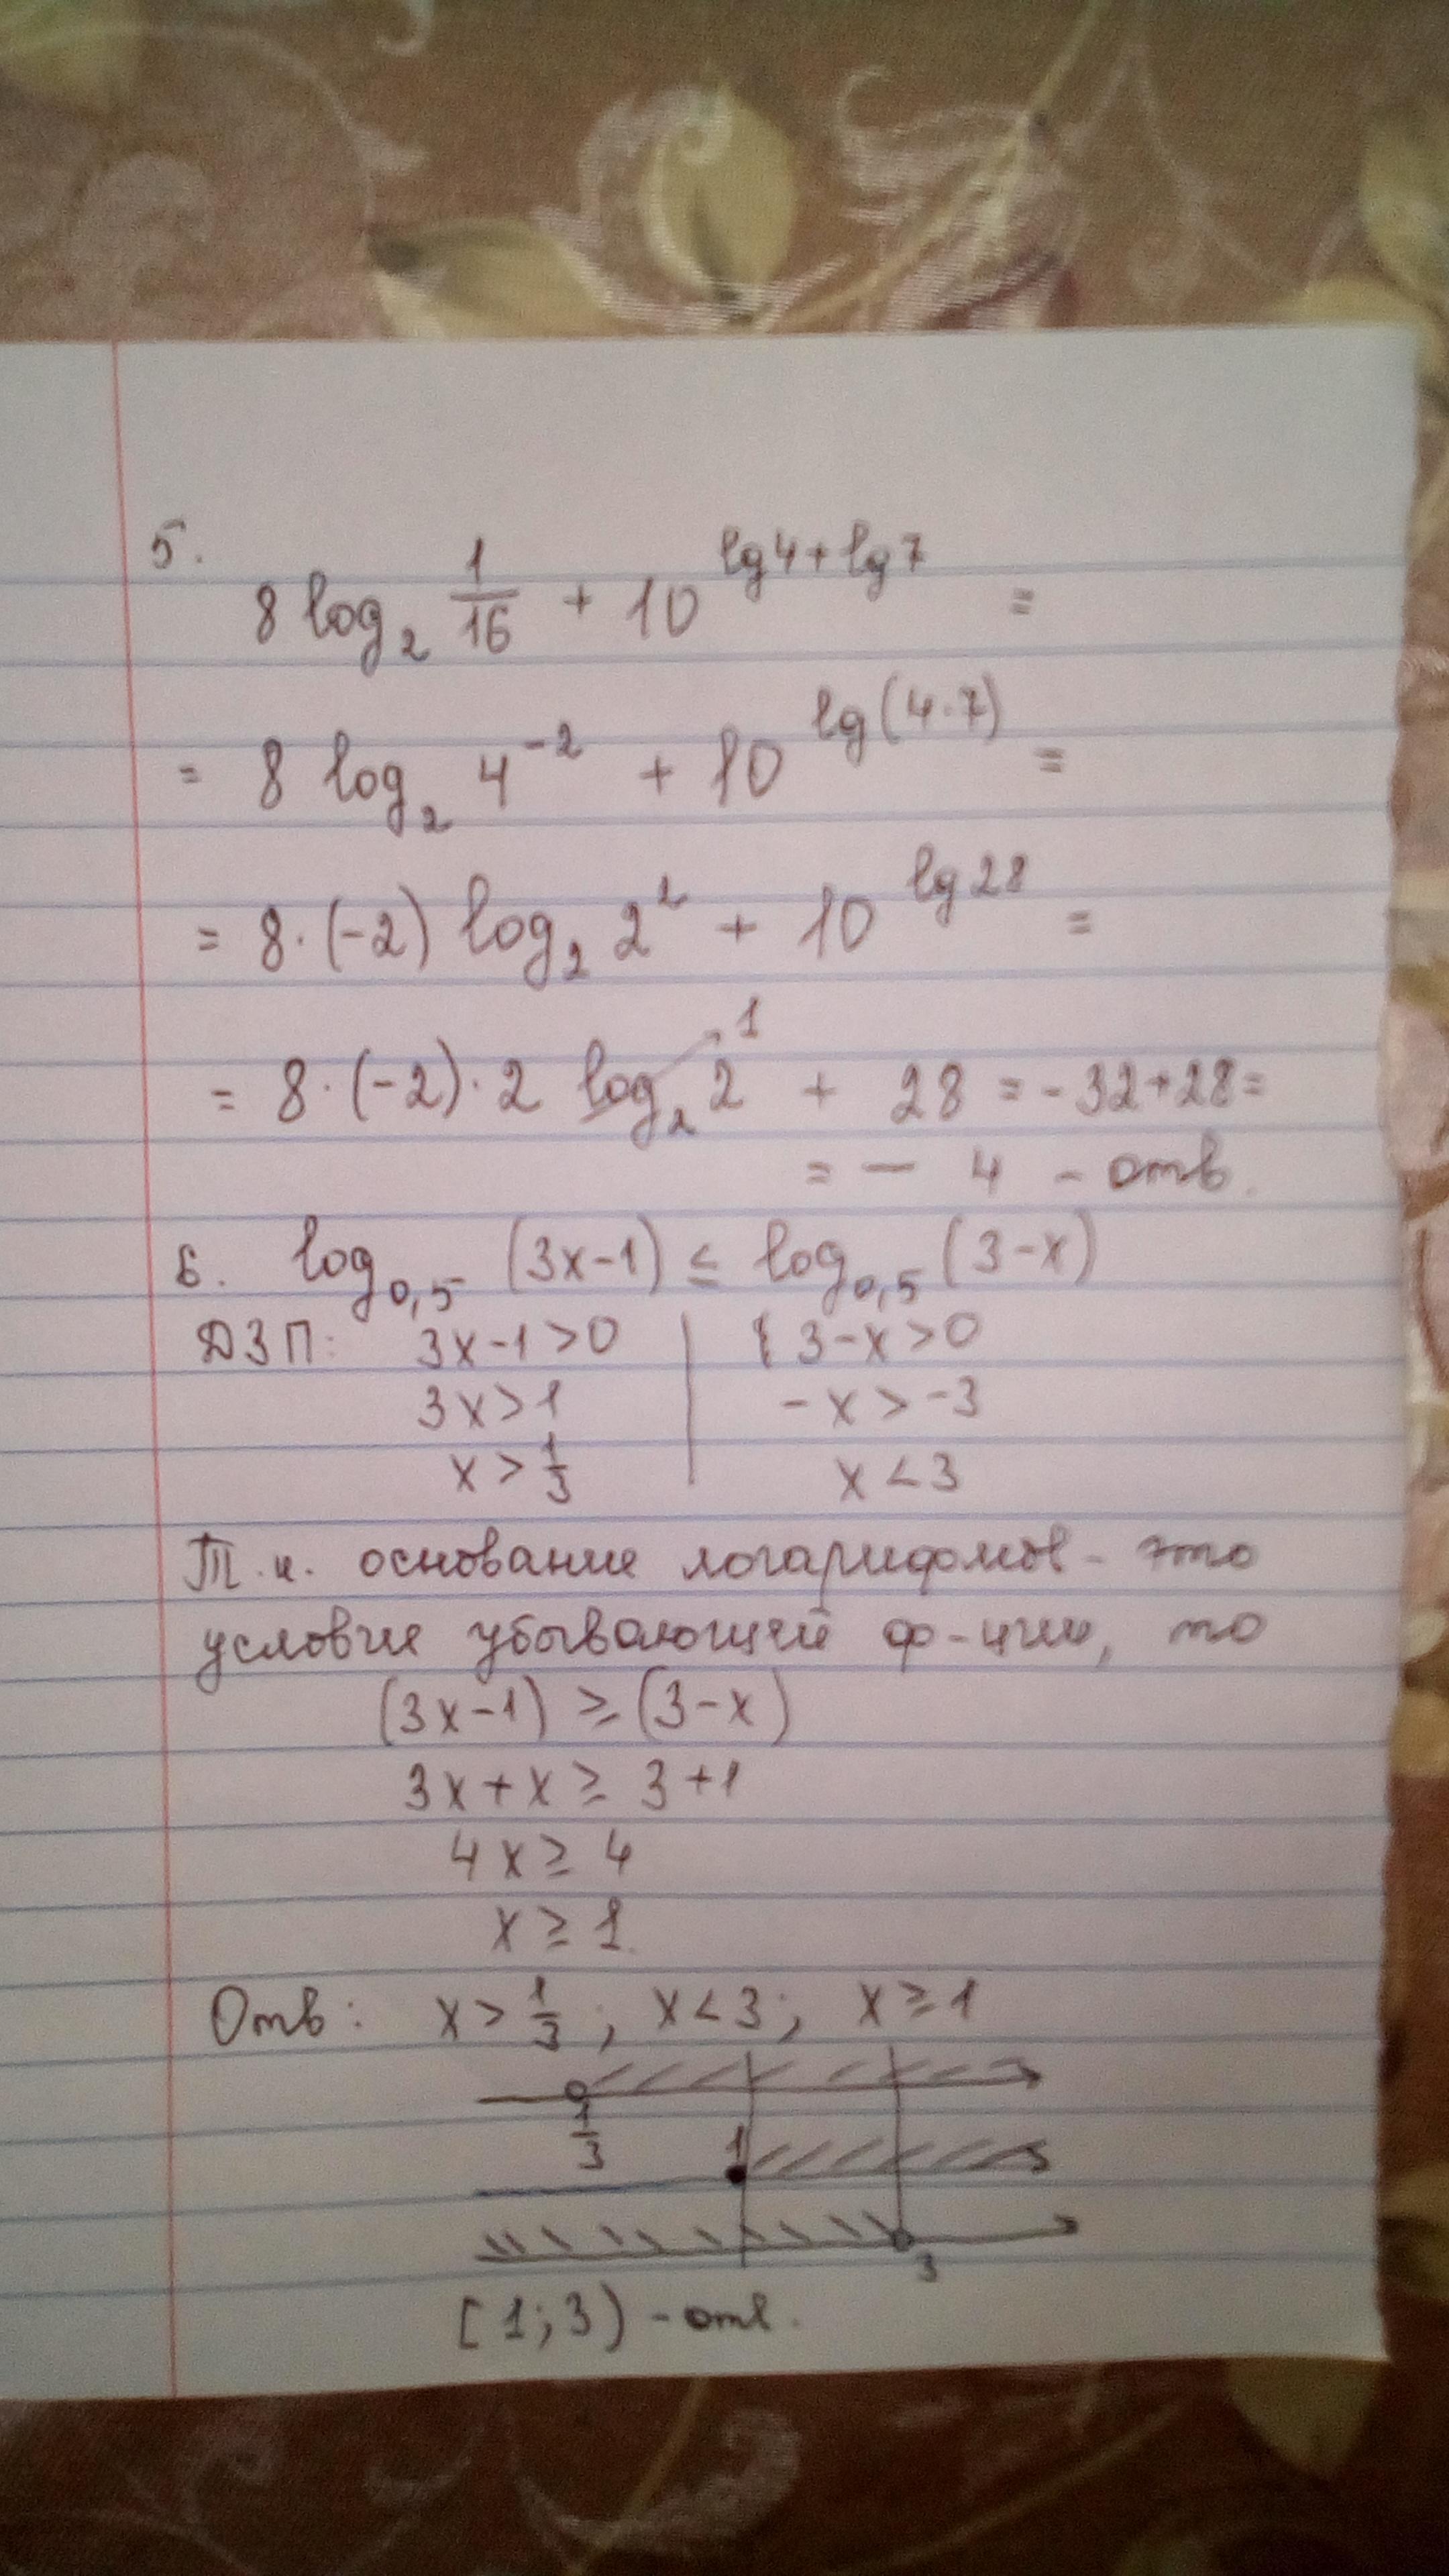 5.
8 log₂ 1/16 + 10^(lg4+lg7) =
= 8 log₂ 4⁻² + 10^(lg(4·7)) =
= 8·(-2) log₂ 2² + 10^(lg28) =
= 8·(-2)·2 log₂ 2 → 1 + 28 = -32+28=
= - 4 - отв.
6. log₀,₅ (3x-1) ≤ log₀,₅ (3-x)
ДЗП: 3x-1>0 | { 3-x>0
3x>1 | -x>-3
x>1/3 | x<3
Т.к. основание логарифмов - это
условие убывающей ф-ции, то
(3x-1) ≥ (3-x)
3x+x ≥ 3+1
4x ≥ 4
x ≥ 1.
Отв: x>1/3; x<3; x≥1
1/3
1
3
[1;3) - отв.